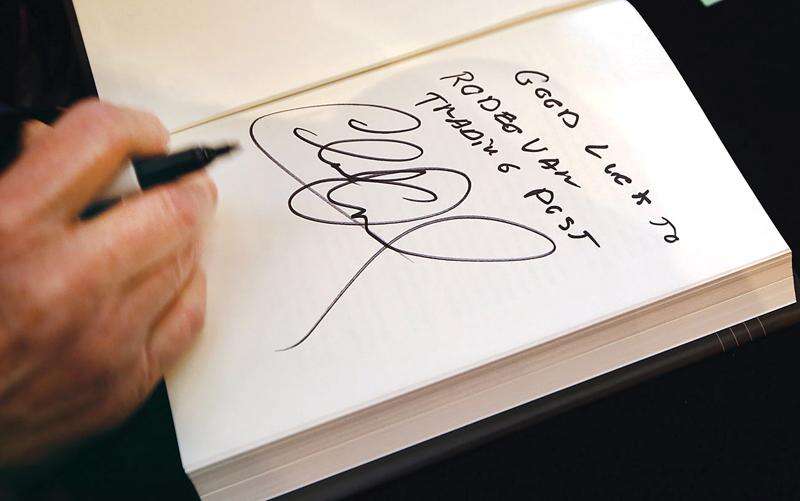 GOOD LUCK TO
RODEO VAN
TRADING POST